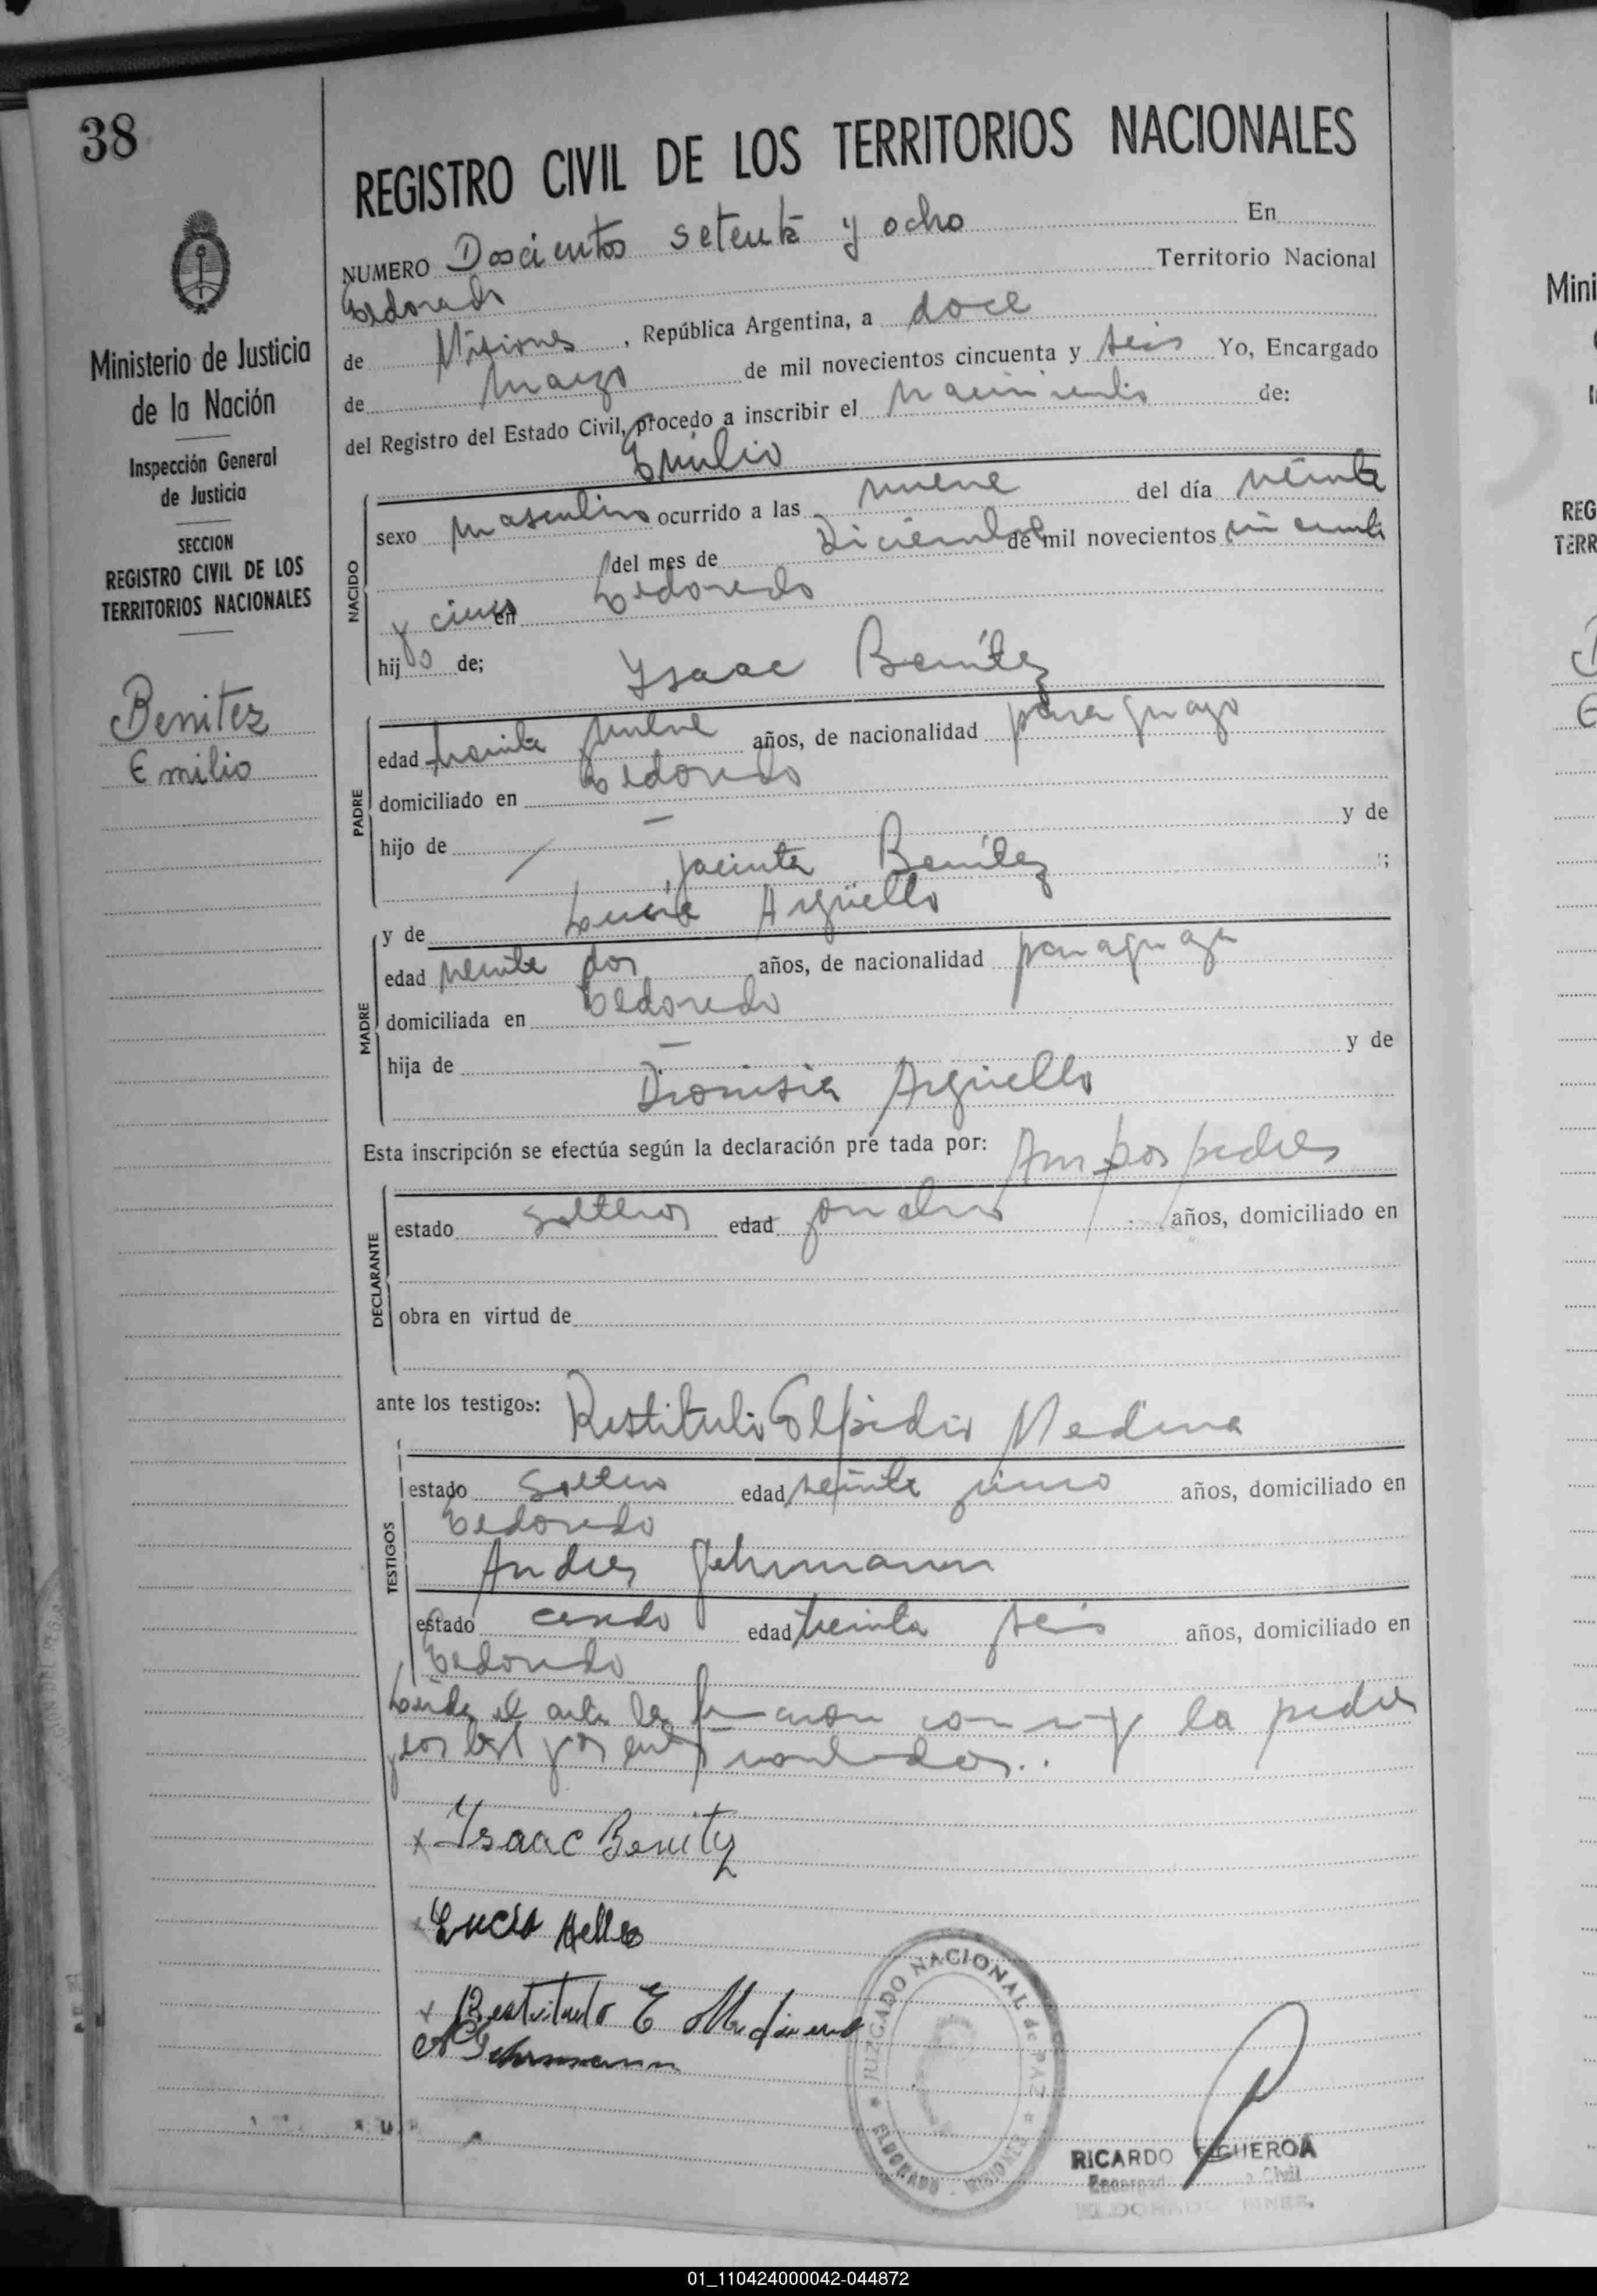 38
Ministerio de Justicia
de la Nación
Inspección General
de Justicia
SECCION
REGISTRO CIVIL DE LOS
TERRITORIOS NACIONALES
Benitez
Emilio
REGISTRO CIVIL DE LOS TERRITORIOS NACIONALES
NUMERO Doscientos setenta y ocho En
Eldorado Territorio Nacional
de Misiones, República Argentina, a doce
de marzo de mil novecientos cincuenta y seis Yo, Encargado
del Registro del Estado Civil, procedo a inscribir el nacimiento de:
Emilio
NACIDO
sexo masculino ocurrido a las nueve del día veinte
del mes de Diciembre de mil novecientos cincuenta
y cinco en Eldorado
hijo de; Ysaac Benítez
PADRE
edad treinta nueve años, de nacionalidad paraguayo
domiciliado en Eldorado
hijo de — y de
Jacinta Benítez ;
y de Lucía Argüello
MADRE
edad veinte dos años, de nacionalidad paraguaya
domiciliada en Eldorado
hija de — y de
Dionisia Argüello
Esta inscripción se efectúa según la declaración pre tada por: Ambos padres
DECLARANTE
estado solteros edad años, domiciliado en
obra en virtud de
ante los testigos: Restituto Elpidio Medina
TESTIGOS
estado soltero edad veinte cinco años, domiciliado en
Eldorado
Andres Gehrmann
estado casado edad treinta seis años, domiciliado en
Eldorado
Leída el acta la firman conmigo los padres
x Ysaac Benitez
x Lucia
x Restituto E Medina
A Gehrmann
JUZGADO NACIONAL de PAZ
ELDORADO - MISIONES
RICARDO FIGUEROA
ELDORADO MNES.
01_110424000042-044872